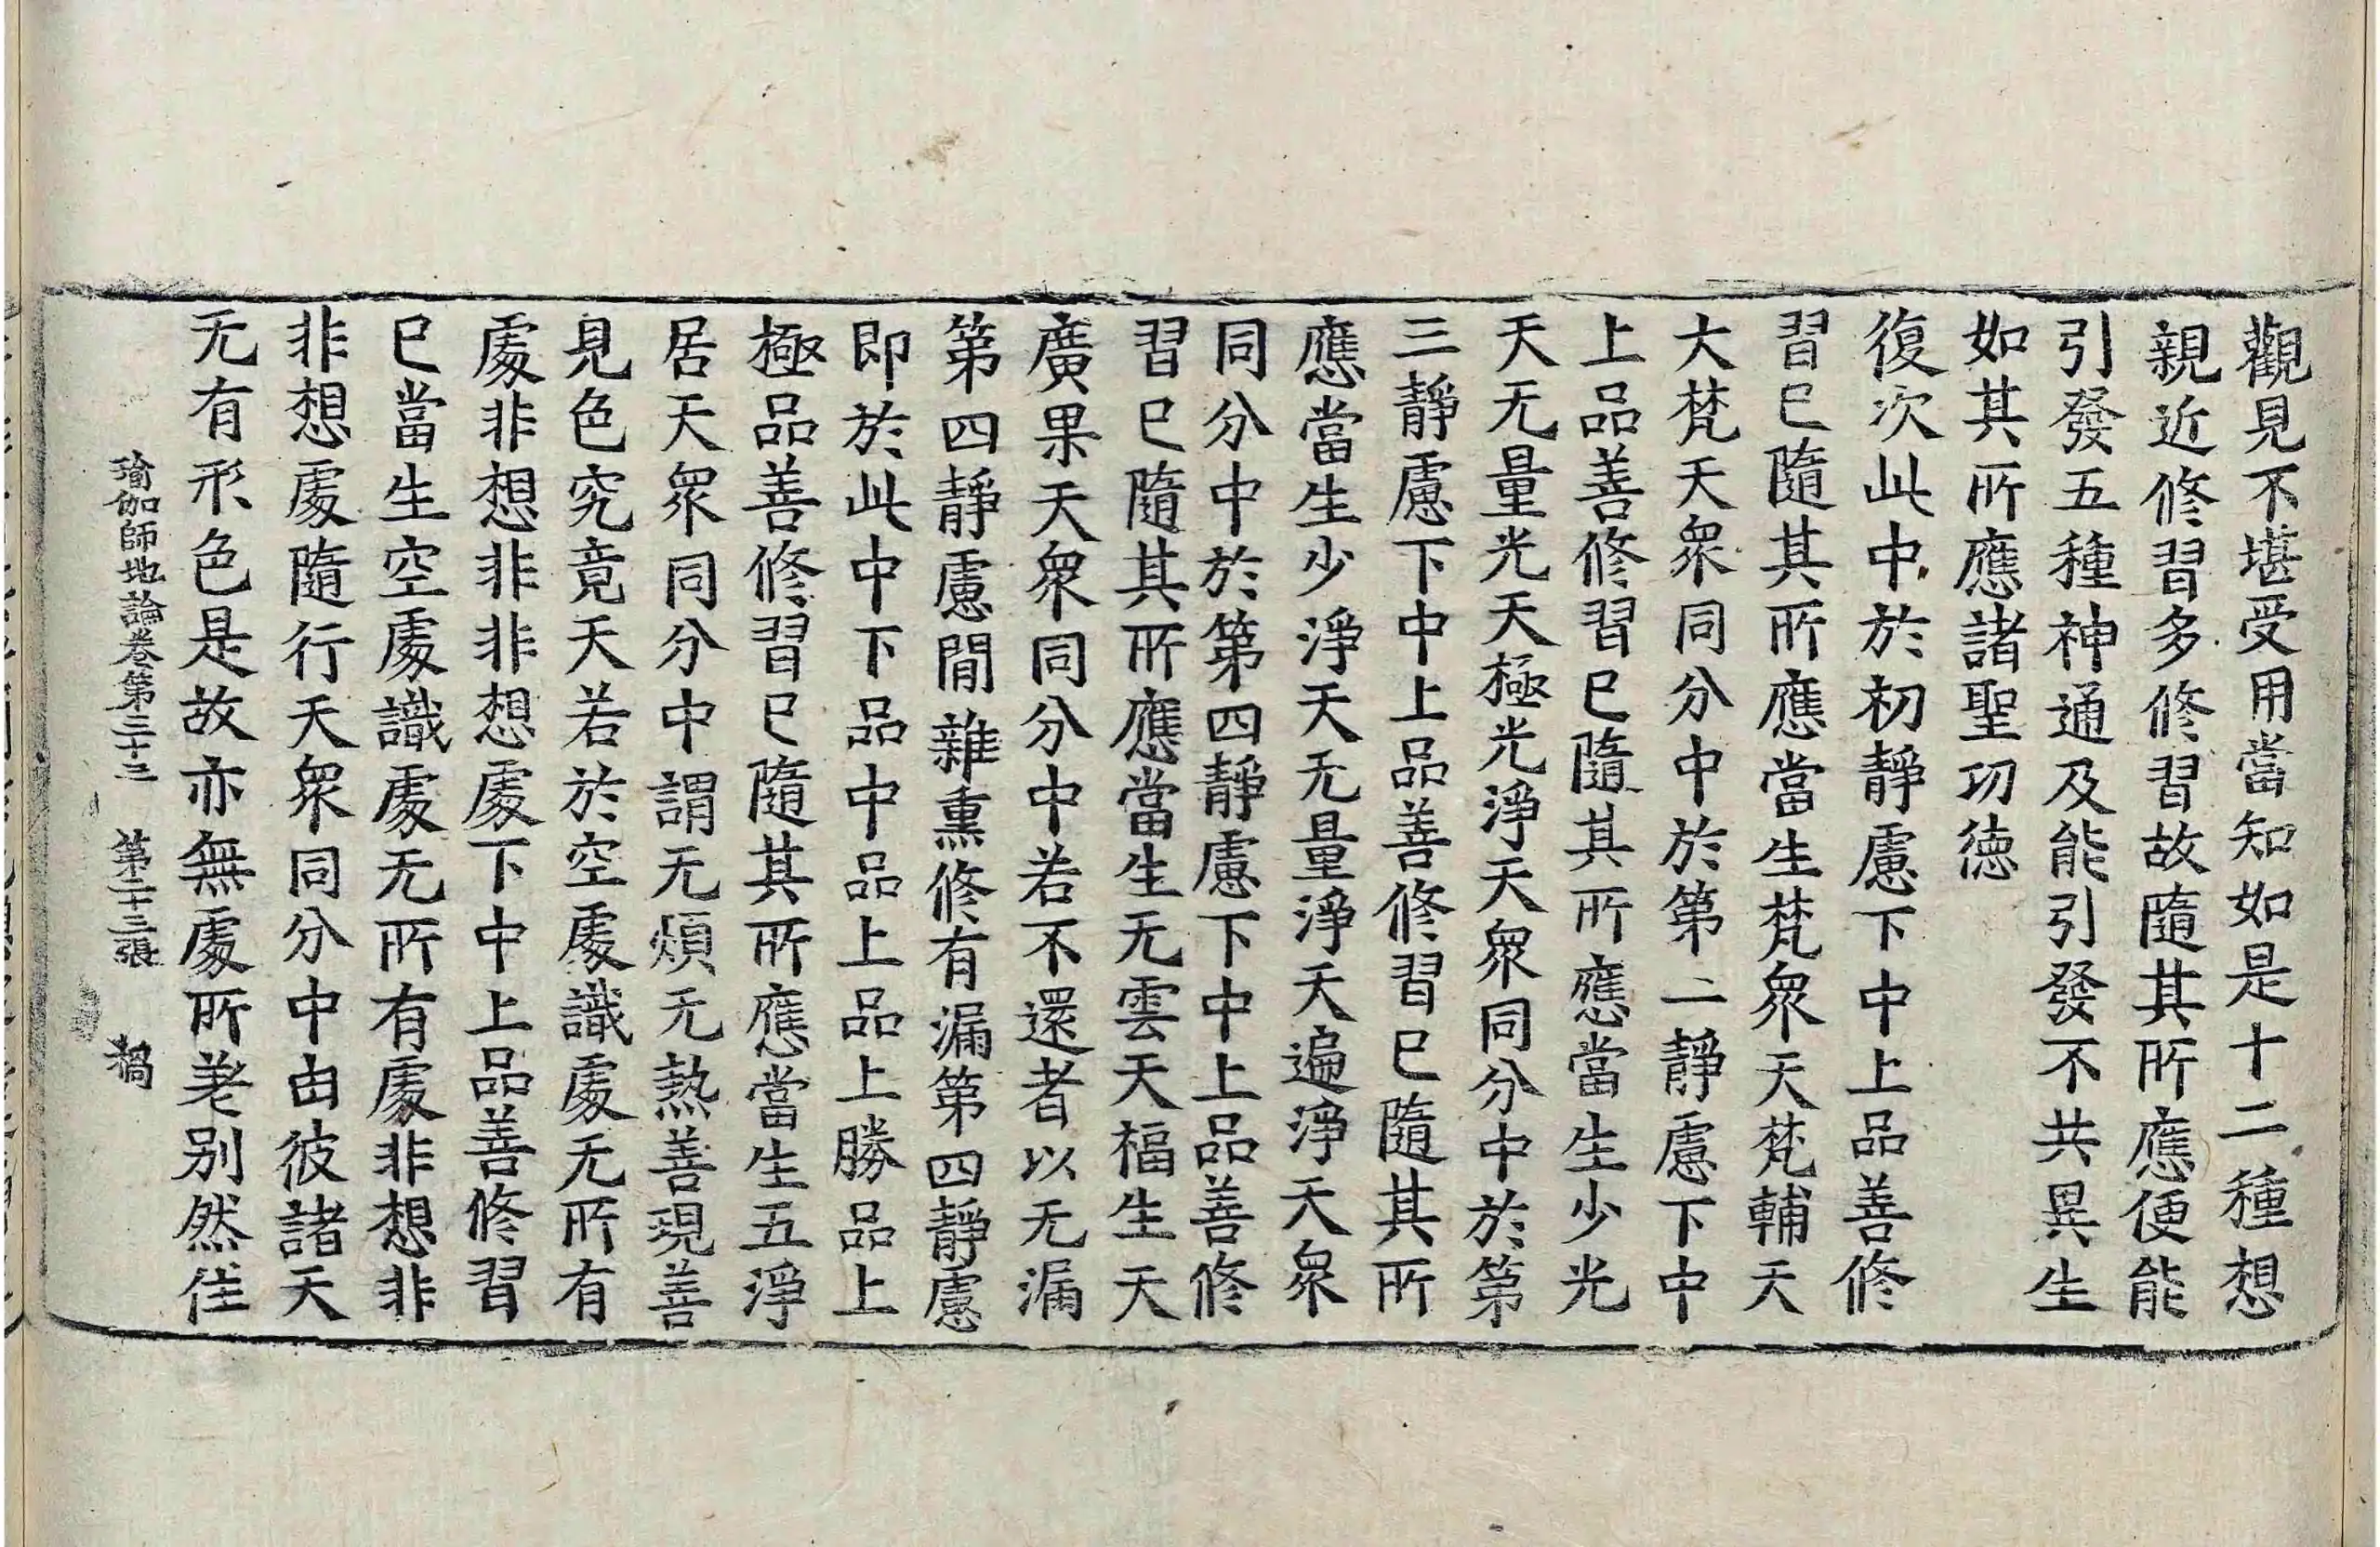 觀見不堪受用當知如是十二種想
親近修習多修習故隨其所應便能
引發五種神通及能引發不共異生
如其所應諸聖功德
復次此中於初靜慮下中上品善修
習已隨其所應當生梵衆天梵輔天
大梵天衆同分中於第二靜慮下中
上品善修習已隨其所應當生少光
天无量光天極光淨天衆同分中於第
三靜慮下中上品善修習已隨其所
應當生少淨天无量淨天遍淨天衆
同分中於第四靜慮下中上品善修
習已隨其所應當生无雲天福生天
廣果天衆同分中若不還者以无漏
第四靜慮閒雜熏修有漏第四靜慮
即於此中下品中品上品上勝品上
極品善修習已隨其所應當生五淨
居天衆同分中謂无煩无熱善現善
見色究竟天若於空處識處无所有
處非想非非想處下中上品善修習
已當生空處識處无所有處非想非
非想處隨行天衆同分中由彼諸天
无有形色是故亦無處所差別然住
瑜伽師地論卷第三十三 第二十三張